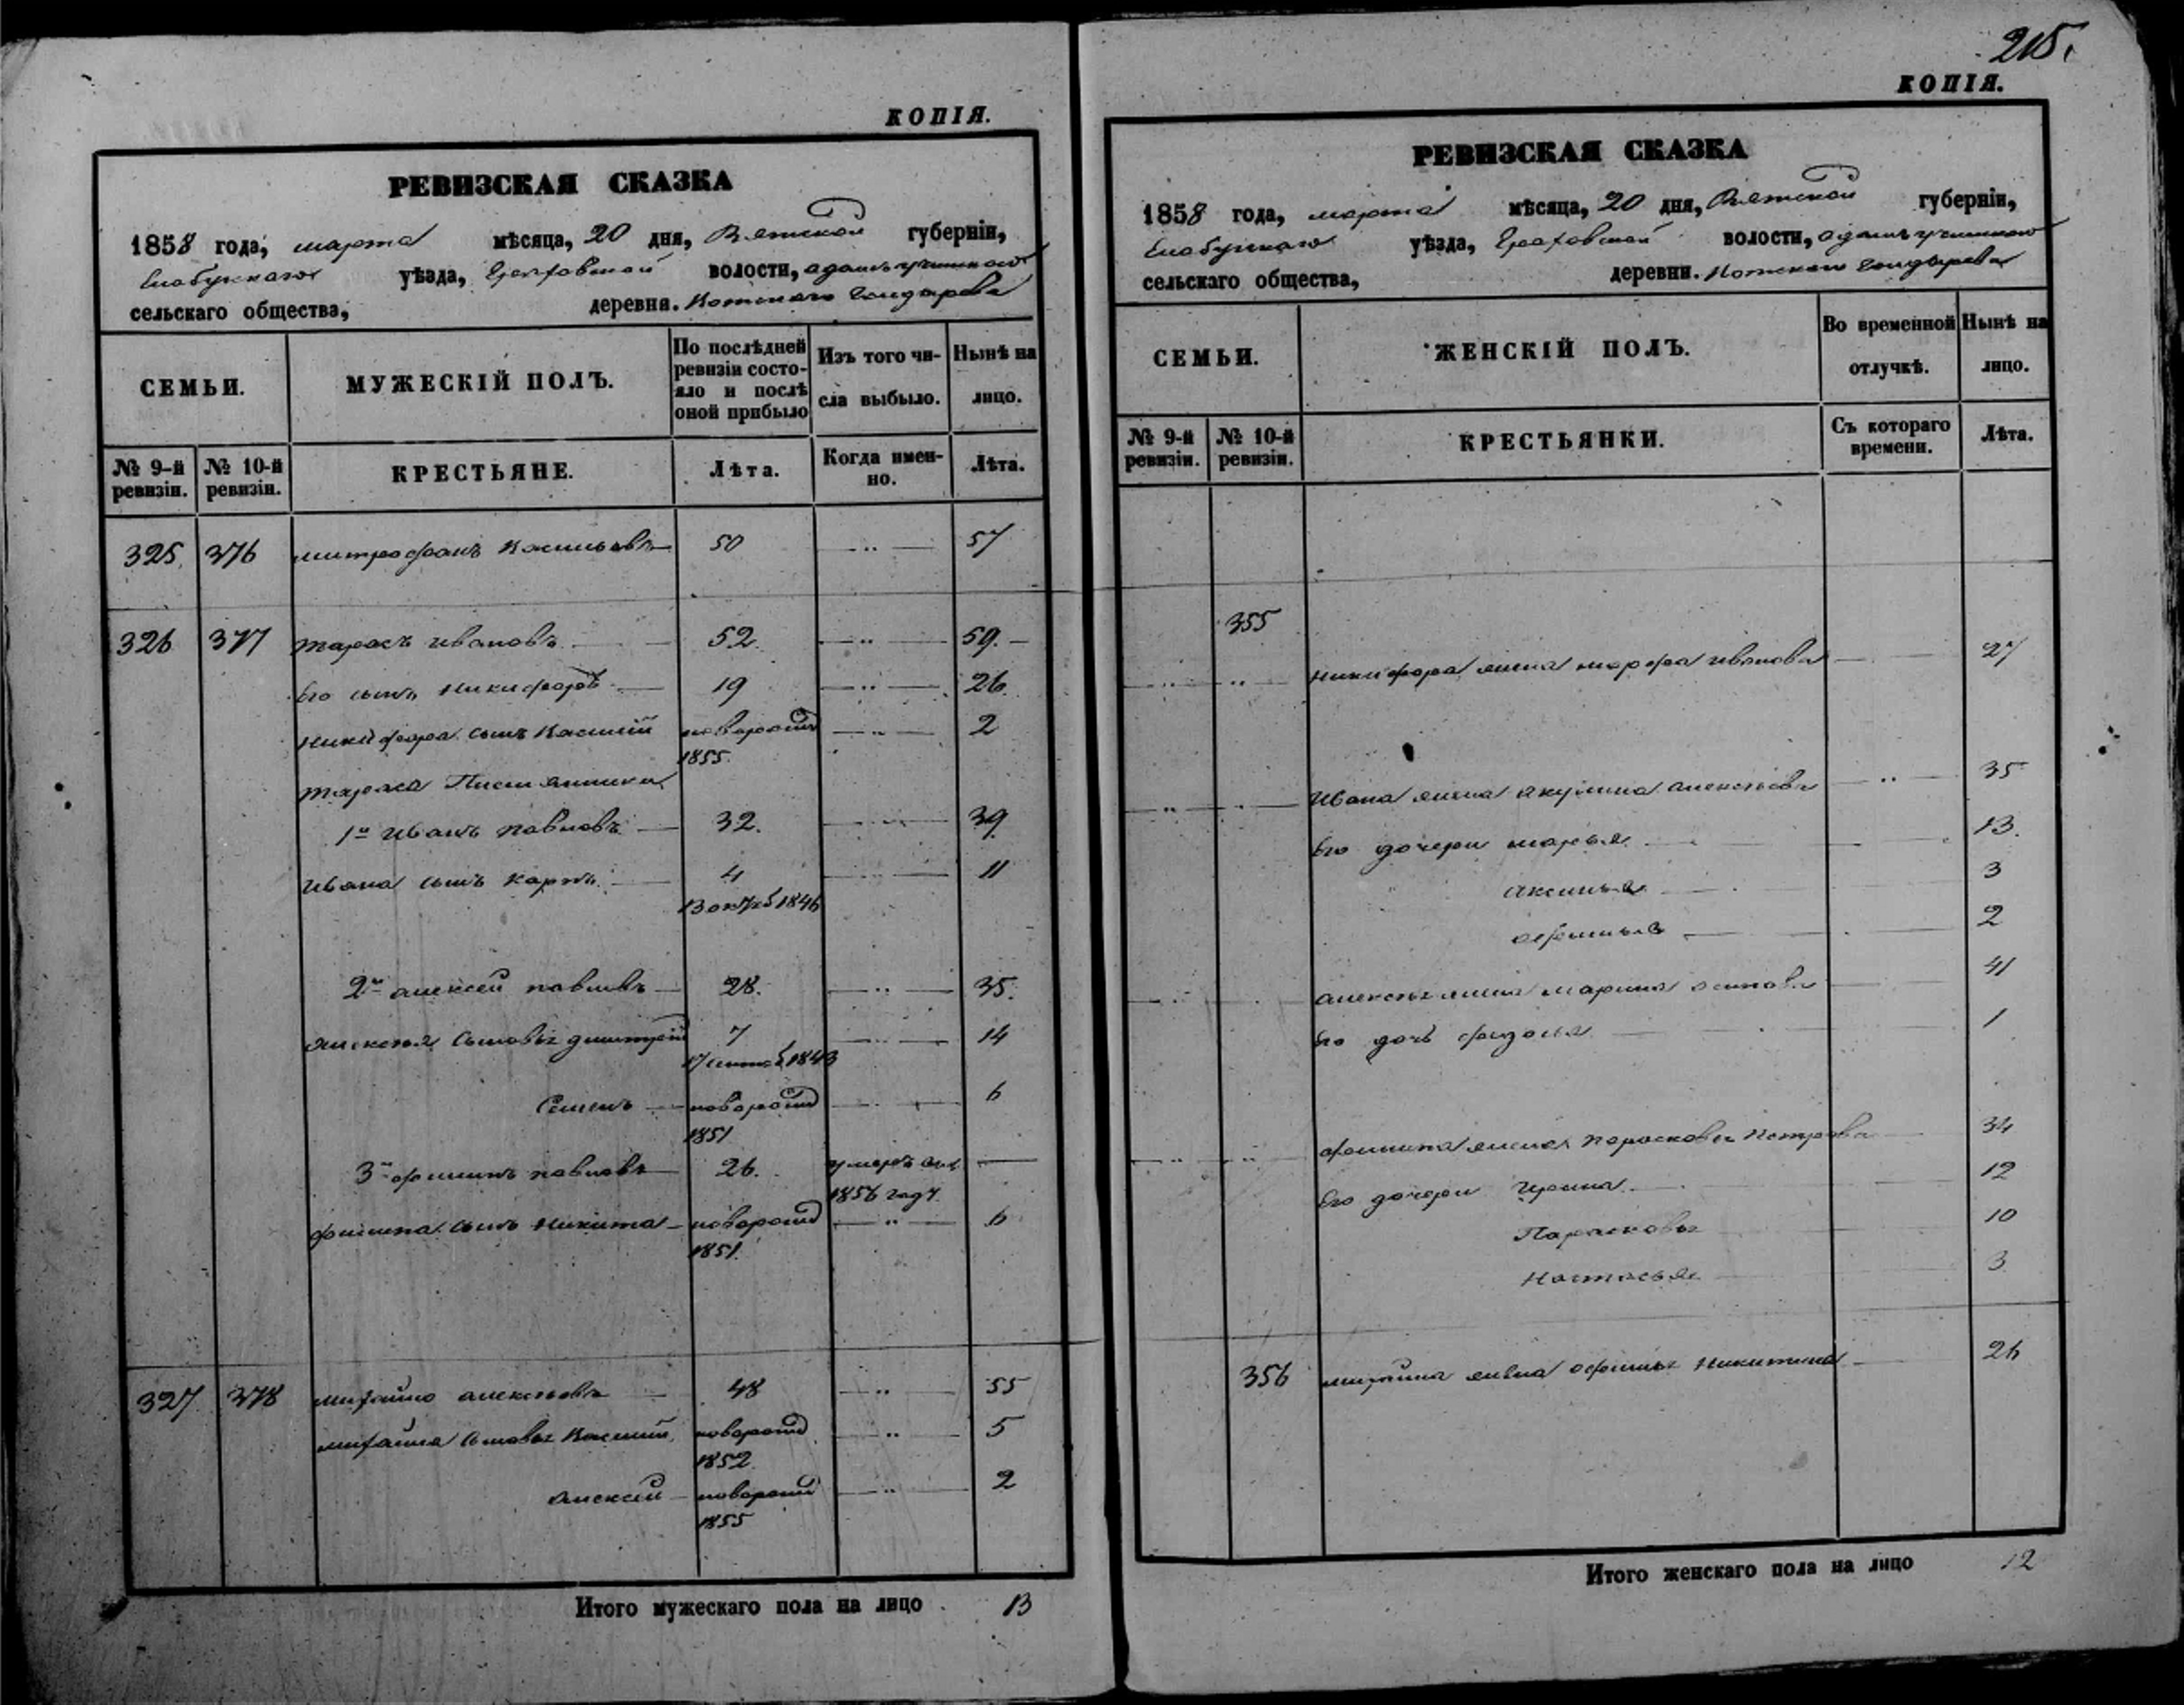 КОПІЯ.
РЕВИЗСКАЯ СКАЗКА
1858 года, марта мѣсяца, 20 дня, Вятской губерніи,
Елабужскаго уѣзда, Граховской волости,
сельскаго общества, деревня.
СЕМЬИ.
МУЖЕСКІЙ ПОЛЪ.
По послѣдней
ревизіи состо-
яло и послѣ
оной прибыло
Изъ того чи-
сла выбыло.
Нынѣ на
лицо.
№ 9-й
ревизіи.
№ 10-й
ревизіи.
КРЕСТЬЯНЕ.
Лѣта.
Когда имен-
но.
Лѣта.
325 376 митрофанъ Васильевъ 50 57
326 377 тарасъ ивановъ 52. 59.
Его сынъ Никифоръ 19 26.
Никифора сынъ Василій новорожд 2
1855.
тараса
1й иванъ павловъ 32. 39
ивана сынъ карпъ 4 11
13 октяб 1846
2й алексей павловъ 28. 35.
алексея сыновья дмитрей 7 14
17 сентяб 1843
Семенъ новорожд 6
1851
3й филипъ павловъ 26. умеръ въ
1856 году
филипа сынъ Никита новорожд 6
1851.
327 378 михайло алексеевъ 48 55
михайла сыновья Василий новорожд 5
1852.
алексей новорожд 2
1855
Итого мужескаго пола на лицо 13
215.
КОПІЯ.
РЕВИЗСКАЯ СКАЗКА
1858 года, марта мѣсяца, 20 дня, Вятской губерніи,
Елабужскаго уѣзда, Граховской волости,
сельскаго общества, деревни.
СЕМЬИ.
ЖЕНСКІЙ ПОЛЪ.
Во временной
отлучкѣ.
Нынѣ на
лицо.
№ 9-й
ревизіи.
№ 10-й
ревизіи.
КРЕСТЬЯНКИ.
Съ котораго
времени.
Лѣта.
355
Никифора жена марфа иванова 27
ивана жена акулина алексеева 35
Его дочери марья 13.
аксинья 3
афимья 2
алексея жена марина осипова 41
Его дочь 1
филипа жена парасковья Петрова 34
Его дочери Ирина 12
Парасковья 10
Настасья 3
356 михайла жена афимья Никитина 26
Итого женскаго пола на лицо 12